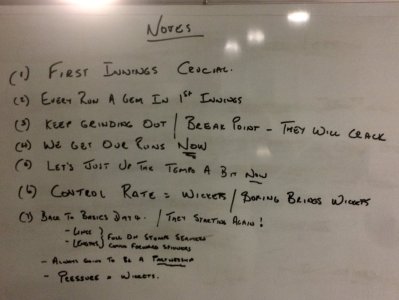 NOTES
(1) FIRST INNINGS CRUCIAL.
(2) EVERY RUN A GEM IN 1ST INNINGS
(3) KEEP GRINDING OUT / BREAK POINT - THEY WILL CRACK
(4) WE GET OUR RUNS NOW
(5) LET'S JUST UP THE TEMPO A BIT NOW
(6) CONTROL RATE = WICKETS / BORING BRINGS WICKETS
(7) BACK TO BASICS DAY 4. / THEY STARTING AGAIN!
- LINES } FULL ON STUMPS SEAMERS
- LENGTHS } COMING FORWARD SPINNERS
- ALWAYS GOING TO BE A PARTNERSHIP
- PRESSURE = WICKETS.